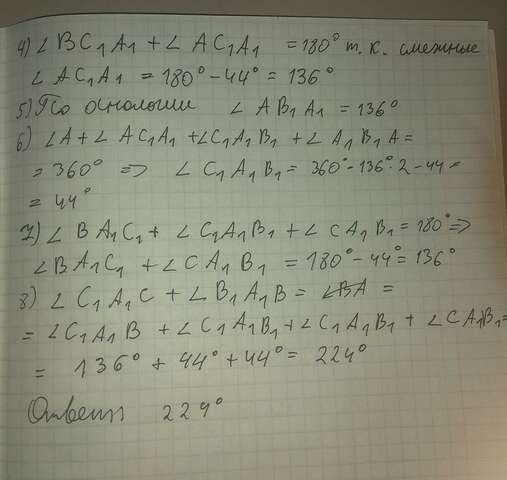 4) ∠ BC₁A₁ + ∠ AC₁A₁ = 180° т. к. смежные
∠ AC₁A₁ = 180° - 44° = 136°
5) По аналогии ∠ AB₁A₁ = 136°
6) ∠A + ∠ AC₁A₁ + ∠C₁A₁B₁ + ∠ A₁B₁A =
= 360° => ∠ C₁A₁B₁ = 360° - 136° · 2 - 44 =
= 44°
7) ∠ BA₁C₁ + ∠ C₁A₁B₁ + ∠ CA₁B₁ = 180° =>
∠BA₁C₁ + ∠CA₁B₁ = 180° - 44° = 136°
8) ∠ C₁A₁C + ∠ B₁A₁B = ∠BA =
= ∠C₁A₁B + ∠C₁A₁B₁ + ∠C₁A₁B₁ + ∠CA₁B₁ =
= 136° + 44° + 44° = 224°
Ответ 224°